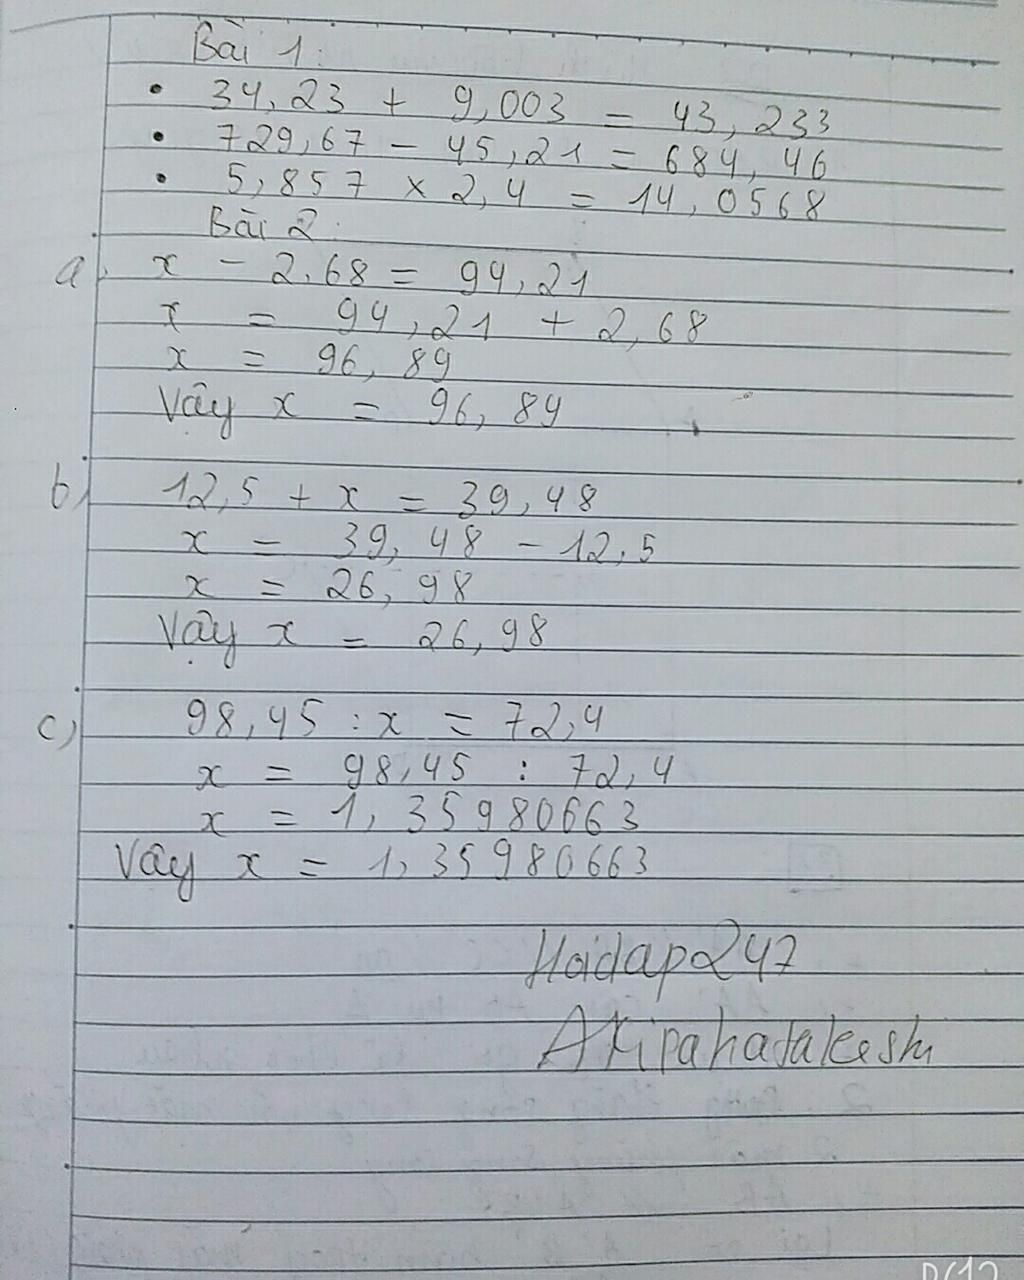 Bài 1:
• 34,23 + 9,003 = 43,233
• 729,67 - 45,21 = 684,46
• 5,857 x 2,4 = 14,0568
Bài 2:
a, x - 2,68 = 94,21
x = 94,21 + 2,68
x = 96,89
Vậy x = 96,89
b, 12,5 + x = 39,48
x = 39,48 - 12,5
x = 26,98
Vậy x = 26,98
c, 98,45 : x = 72,4
x = 98,45 : 72,4
x = 1,35980663
Vậy x = 1,35980663
Hoidap247